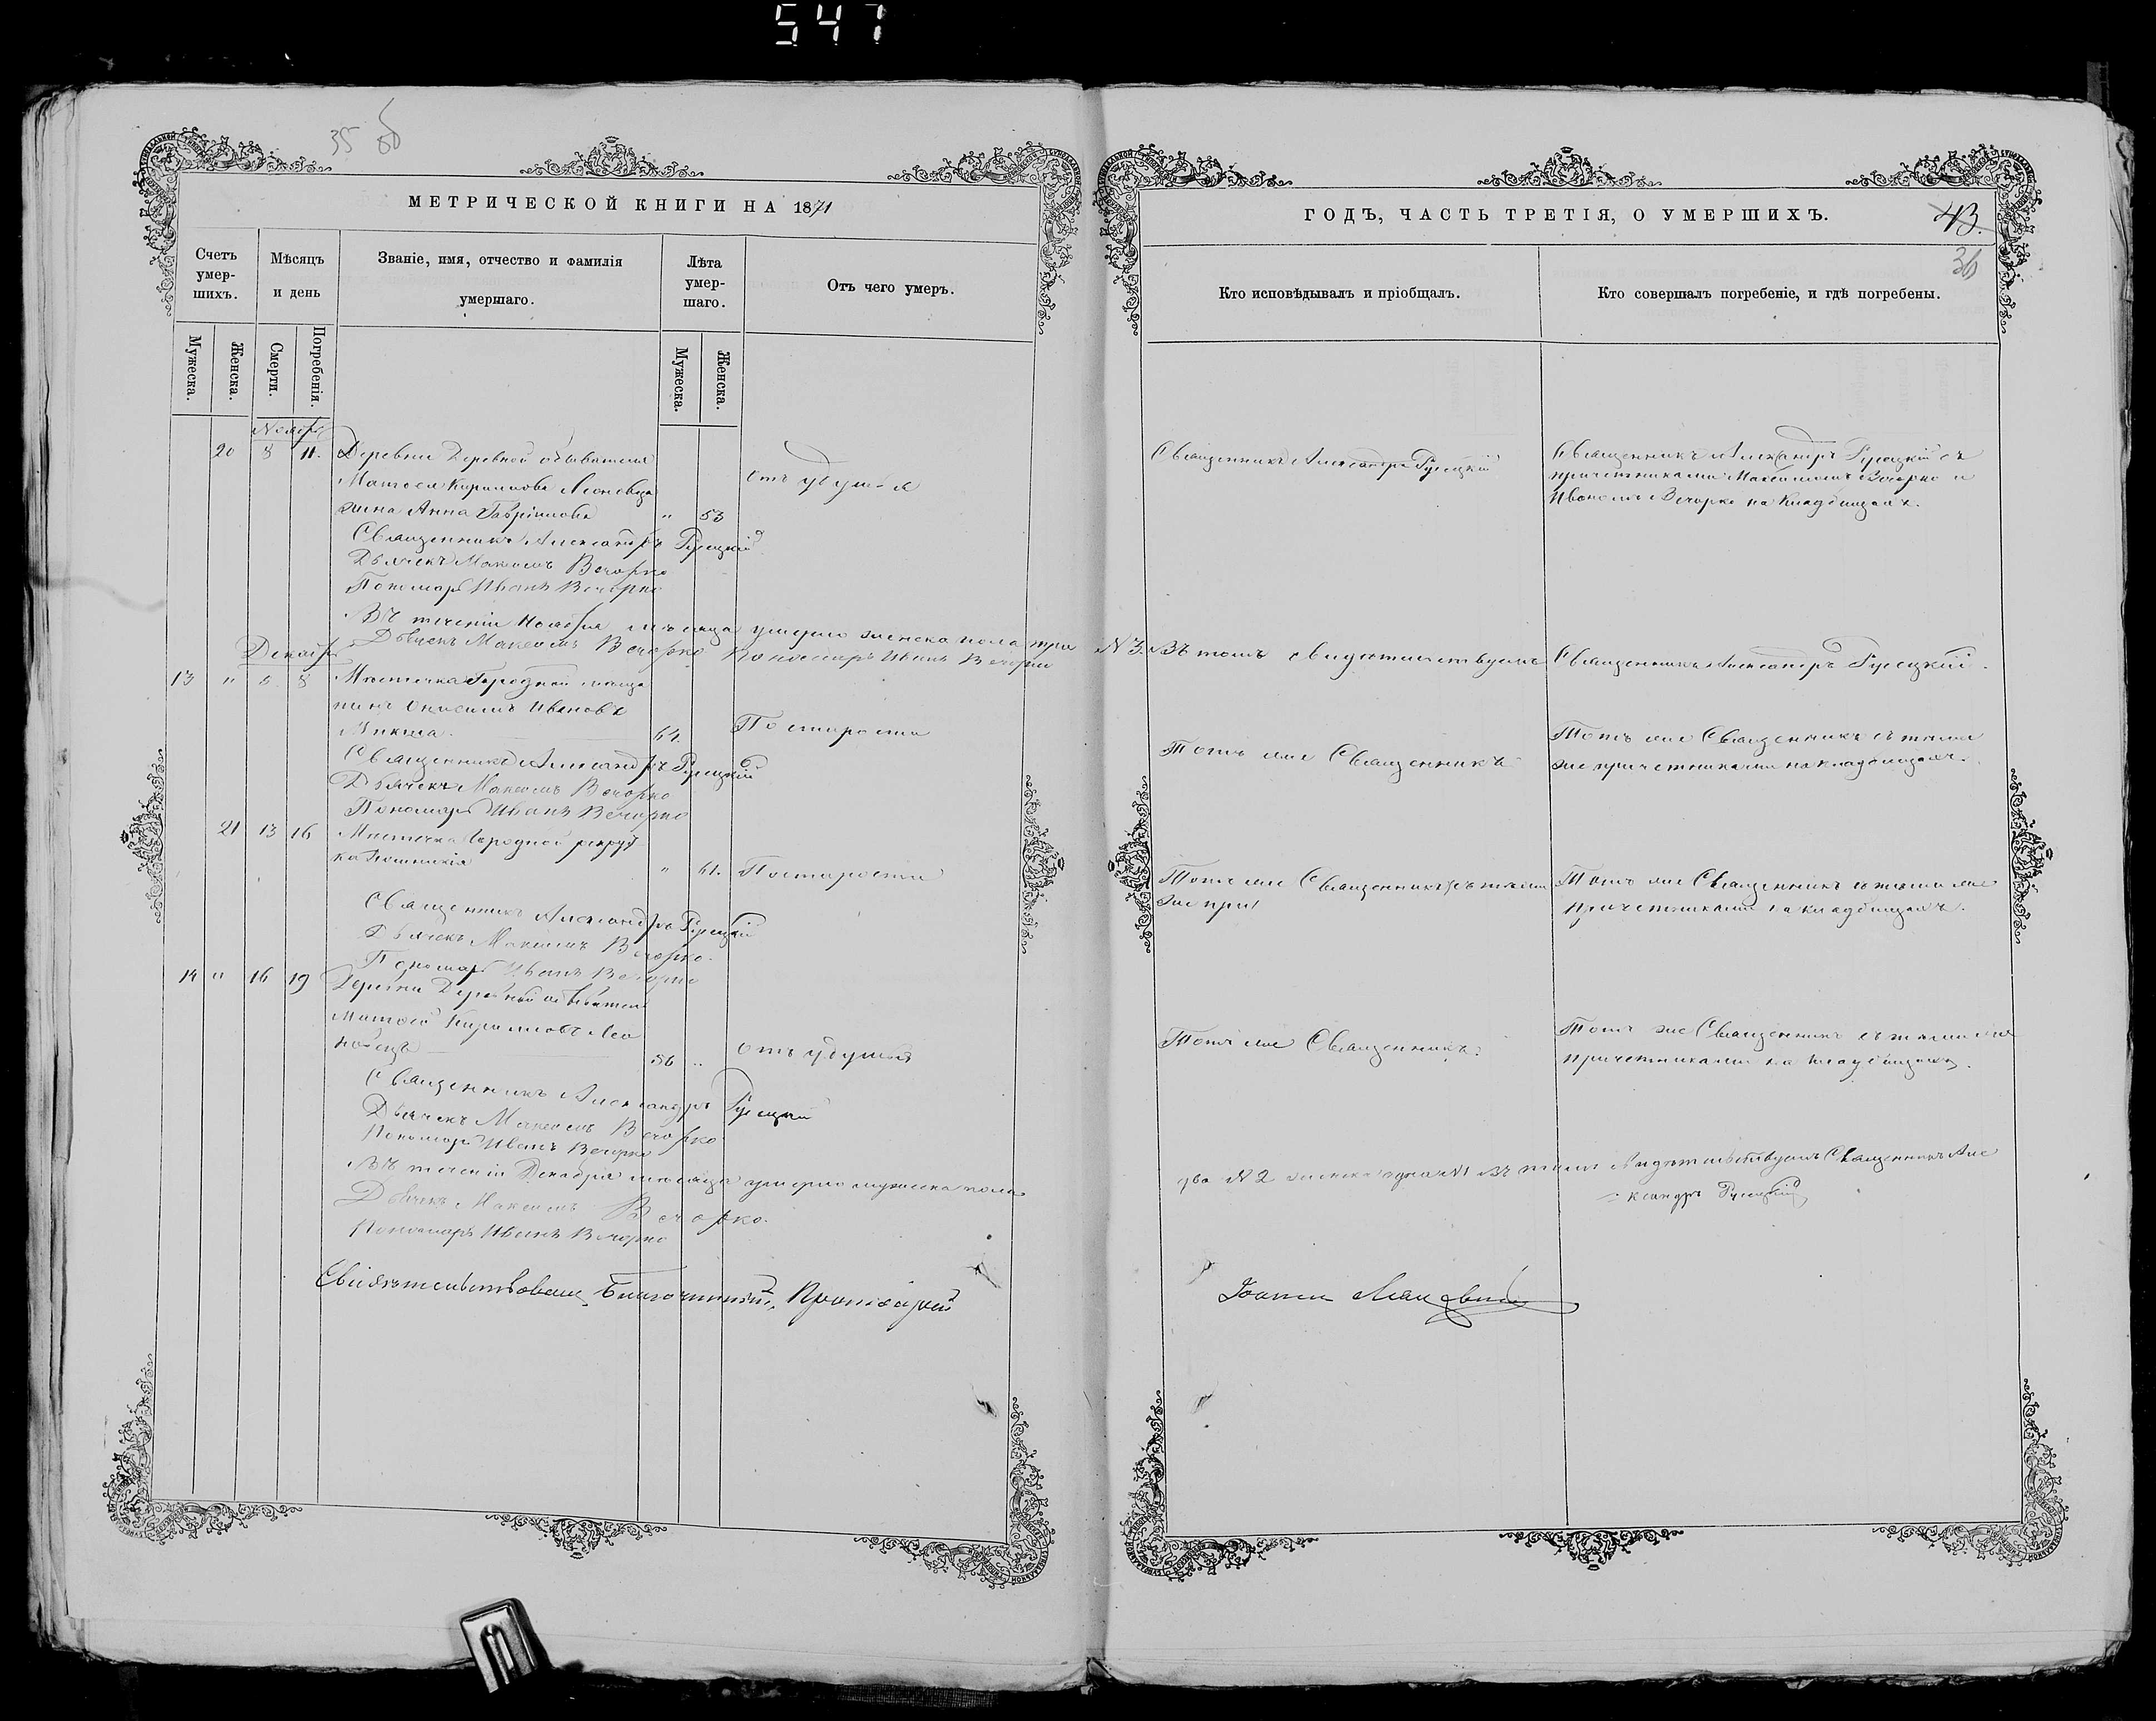 547
35 об
МЕТРИЧЕСКОЙ КНИГИ НА 1871
ГОДЪ, ЧАСТЬ ТРЕТІЯ, О УМЕРШИХЪ.
43.
36
Счетъ умер-шихъ.
Мѣсяцъ и день
Званіе, имя, отчество и фамилія умершаго.
Лѣта умер-шаго.
Отъ чего умеръ.
Кто исповѣдывалъ и пріобщалъ.
Кто совершалъ погребеніе, и гдѣ погребены.
Мужеска.
Женска.
Смерти.
Погребенія.
Мужеска.
Женска.
Ноябрь
20 8 11. Деревни Деревной обывателя
Матѳея Кириллова
жена Анна Гавріилова " 53
отъ удушья
Священникъ Александръ Русецкій
Священникъ Александръ Русецкій съ
причетниками Максимомъ Вечорко и
Иваномъ Вечорко на кладбищахъ.
Священникъ Александръ Русецкій
Дьячекъ Максимъ Вечорко
Пономарь Иванъ Вечорко
Въ теченіи Ноября мѣсяца умерло женска пола три
№ 3. Въ томъ свидѣтельствуемъ Священникъ Александръ Русецкій.
Дьячекъ Максимъ Вечорко Пономарь Иванъ Вечорко
Декабрь
13 " 6 8 Мѣстечка Городной мѣща
нинъ Онисимъ Ивановъ
64.
По старости
Тотъ же Священникъ
Тотъ же Священникъ съ тѣми
же причетниками на кладбищахъ.
Священникъ Александръ Русецкій
Дьячекъ Максимъ Вечорко
Пономарь Иванъ Вечорко
21 13 16 Мѣстечка Городной
" 61. По старости
Тотъ же Священникъ съ тѣми
же при
Тотъ же Священникъ съ тѣми же
причетниками на кладбищахъ.
Священникъ Александръ Русецкій
Дьячекъ Максимъ Вечорко.
Пономарь Иванъ Вечорко
14 " 16 19 Деревни Деревной обыватель
Матѳей Кирилловъ Лео
новецъ
56 "
отъ удушья
Тотъ же Священникъ.
Тотъ же Священникъ съ тѣми же
причетниками на кладбищахъ.
Священникъ Александръ Русецкій
Дьячекъ Максимъ Вечорко
Пономарь Иванъ Вечорко
Въ теченіи Декабря мѣсяца умерло мужеска пола
два № 2 женска одна №1 Въ томъ свидѣтельствуемъ Священникъ Але
ксандръ Русецкій
Дьячекъ Максимъ Вечорко.
Пономарь Иванъ Вечорко
Свидѣтельствовалъ Благочинный, Протоіерей
Іоаннъ